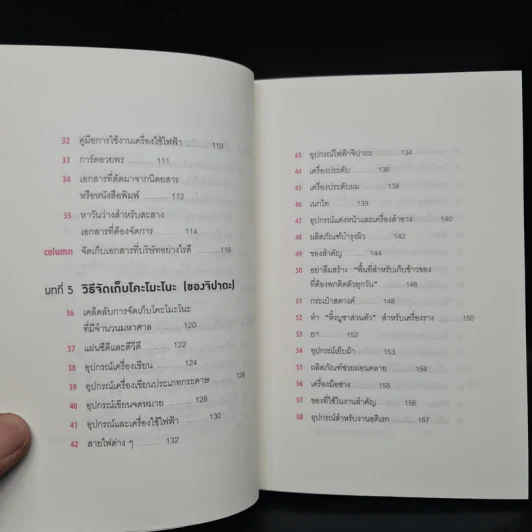 32 คู่มือการใช้งานเครื่องใช้ไฟฟ้า 110
33 การ์ดอวยพร 111
34 เอกสารที่ตัดมาจากนิตยสาร
หรือหนังสือพิมพ์ 112
35 หาวันว่างสำหรับสะสาง
เอกสารที่ต้องจัดการ 114
column จัดเก็บเอกสารที่บริษัทอย่างไรดี 116
บทที่ 5 วิธีจัดเก็บโคะโมะโนะ (ของจิปาถะ)
36 เคล็ดลับการจัดเก็บโคะโมะโนะ
ที่มีจำนวนมหาศาล 120
37 แผ่นซีดีและดีวีดี 122
38 อุปกรณ์เครื่องเขียน 124
39 อุปกรณ์เครื่องเขียนประเภทกระดาษ 126
40 อุปกรณ์เขียนจดหมาย 128
41 อุปกรณ์และเครื่องใช้ไฟฟ้า 130
42 สายไฟต่าง ๆ 132
43 อุปกรณ์ไฟฟ้าจิปาถะ 134
44 เครื่องประดับ 136
45 เครื่องประดับผม 138
46 เนกไท 139
47 อุปกรณ์แต่งหน้าและเครื่องสำอาง 140
48 ผลิตภัณฑ์บำรุงผิว 142
49 ของสำคัญ 144
50 อย่าลืมสร้าง "พื้นที่สำหรับเก็บข้าวของ
ที่ต้องพกติดตัวทุกวัน" 146
51 กระเป๋าสตางค์ 148
52 ทำ "หิ้งบูชาส่วนตัว" สำหรับเครื่องราง 150
53 ยา 152
54 อุปกรณ์เย็บผ้า 153
55 ผลิตภัณฑ์ช่วยผ่อนคลาย 154
56 เครื่องมือช่าง 155
57 ของที่ใช้ในงานสำคัญ 156
58 อุปกรณ์สำหรับงานอดิเรก 157